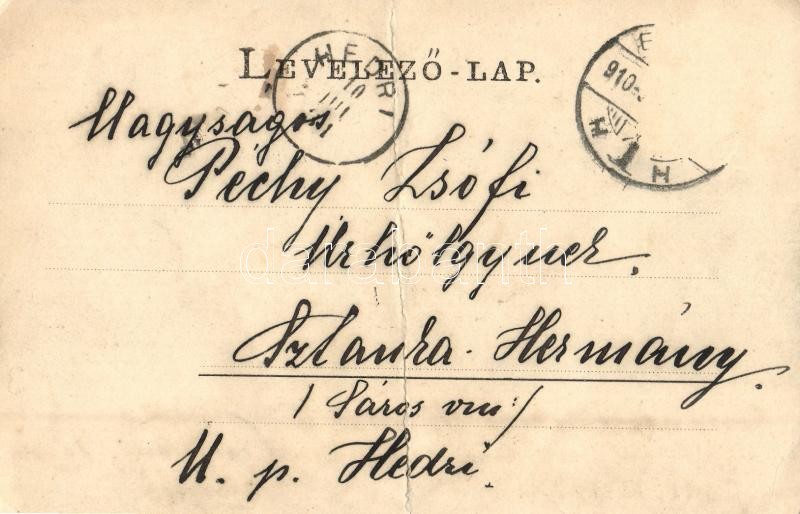 LEVELEZŐ-LAP.
HEDRI
910
Nagyságos
Péchy Zsófi
Úrhölgynek.
Sztanka-Hermány.
/Sáros vm:/
U. p. Hedri.
darabanth